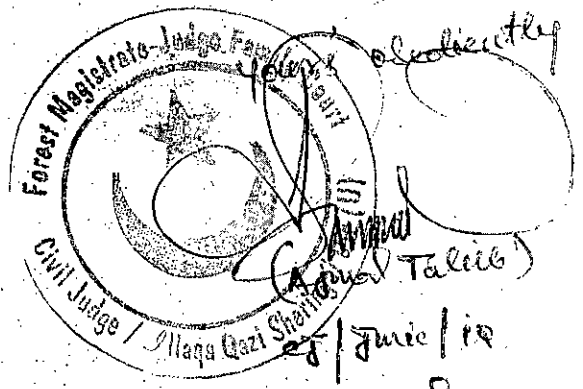 Forest Magistrate-Judge Family Court III
Civil Judge / Illaqa Qazi Sheringal
yours obediently
(Ajmal Talib)